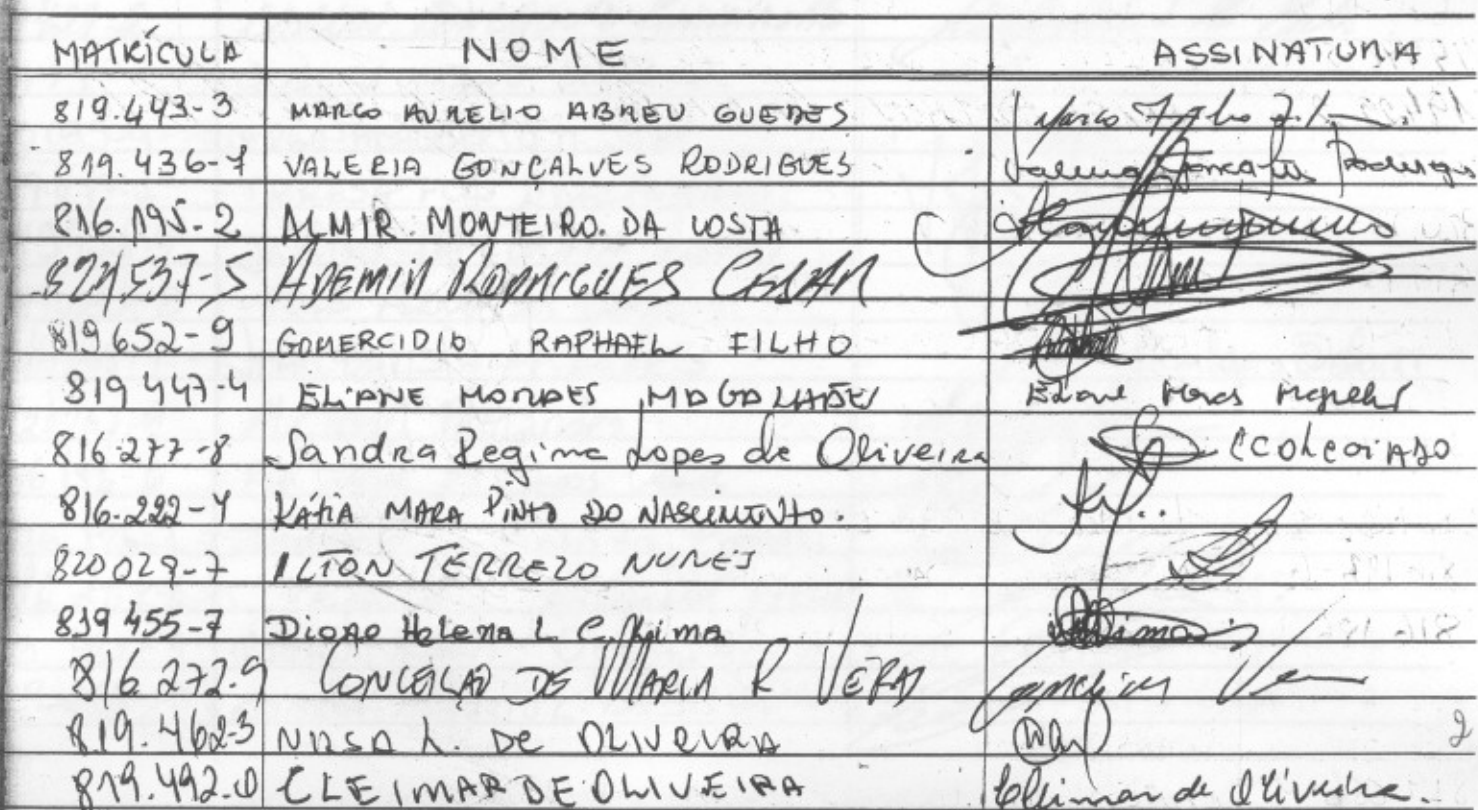 MATRÍCULA NOME ASSINATURA
819.443-3 MARCO AURELIO ABREU GUEDES Marco
819.436-7 VALERIA GONÇALVES RODRIGUES Valeria Gonçalves Rodrigues
816.195-2 ALMIR. MONTEIRO. DA COSTA
821537-5 ADEMIR RODRIGUES CESAR
819652-9 GOMERCIDIO RAPHAEL FILHO
819447-4 ELIANE MORAES MAGALHÃES Eliane
816277-8 Sandra Regina Lopes de Oliveira
816.222-4 KÁTIA MARA PINTO DO NASCIMENTO.
820029-7 ILTON TERREZO NUNES
819455-7 Helena L C. Lima
816.272.9 CONCEIÇÃO DE MARIA R VERAS
819.462-3 L. DE OLIVEIRA 2
819.492.0 CLEIMAR DE OLIVEIRA Cleimar de Oliveira.